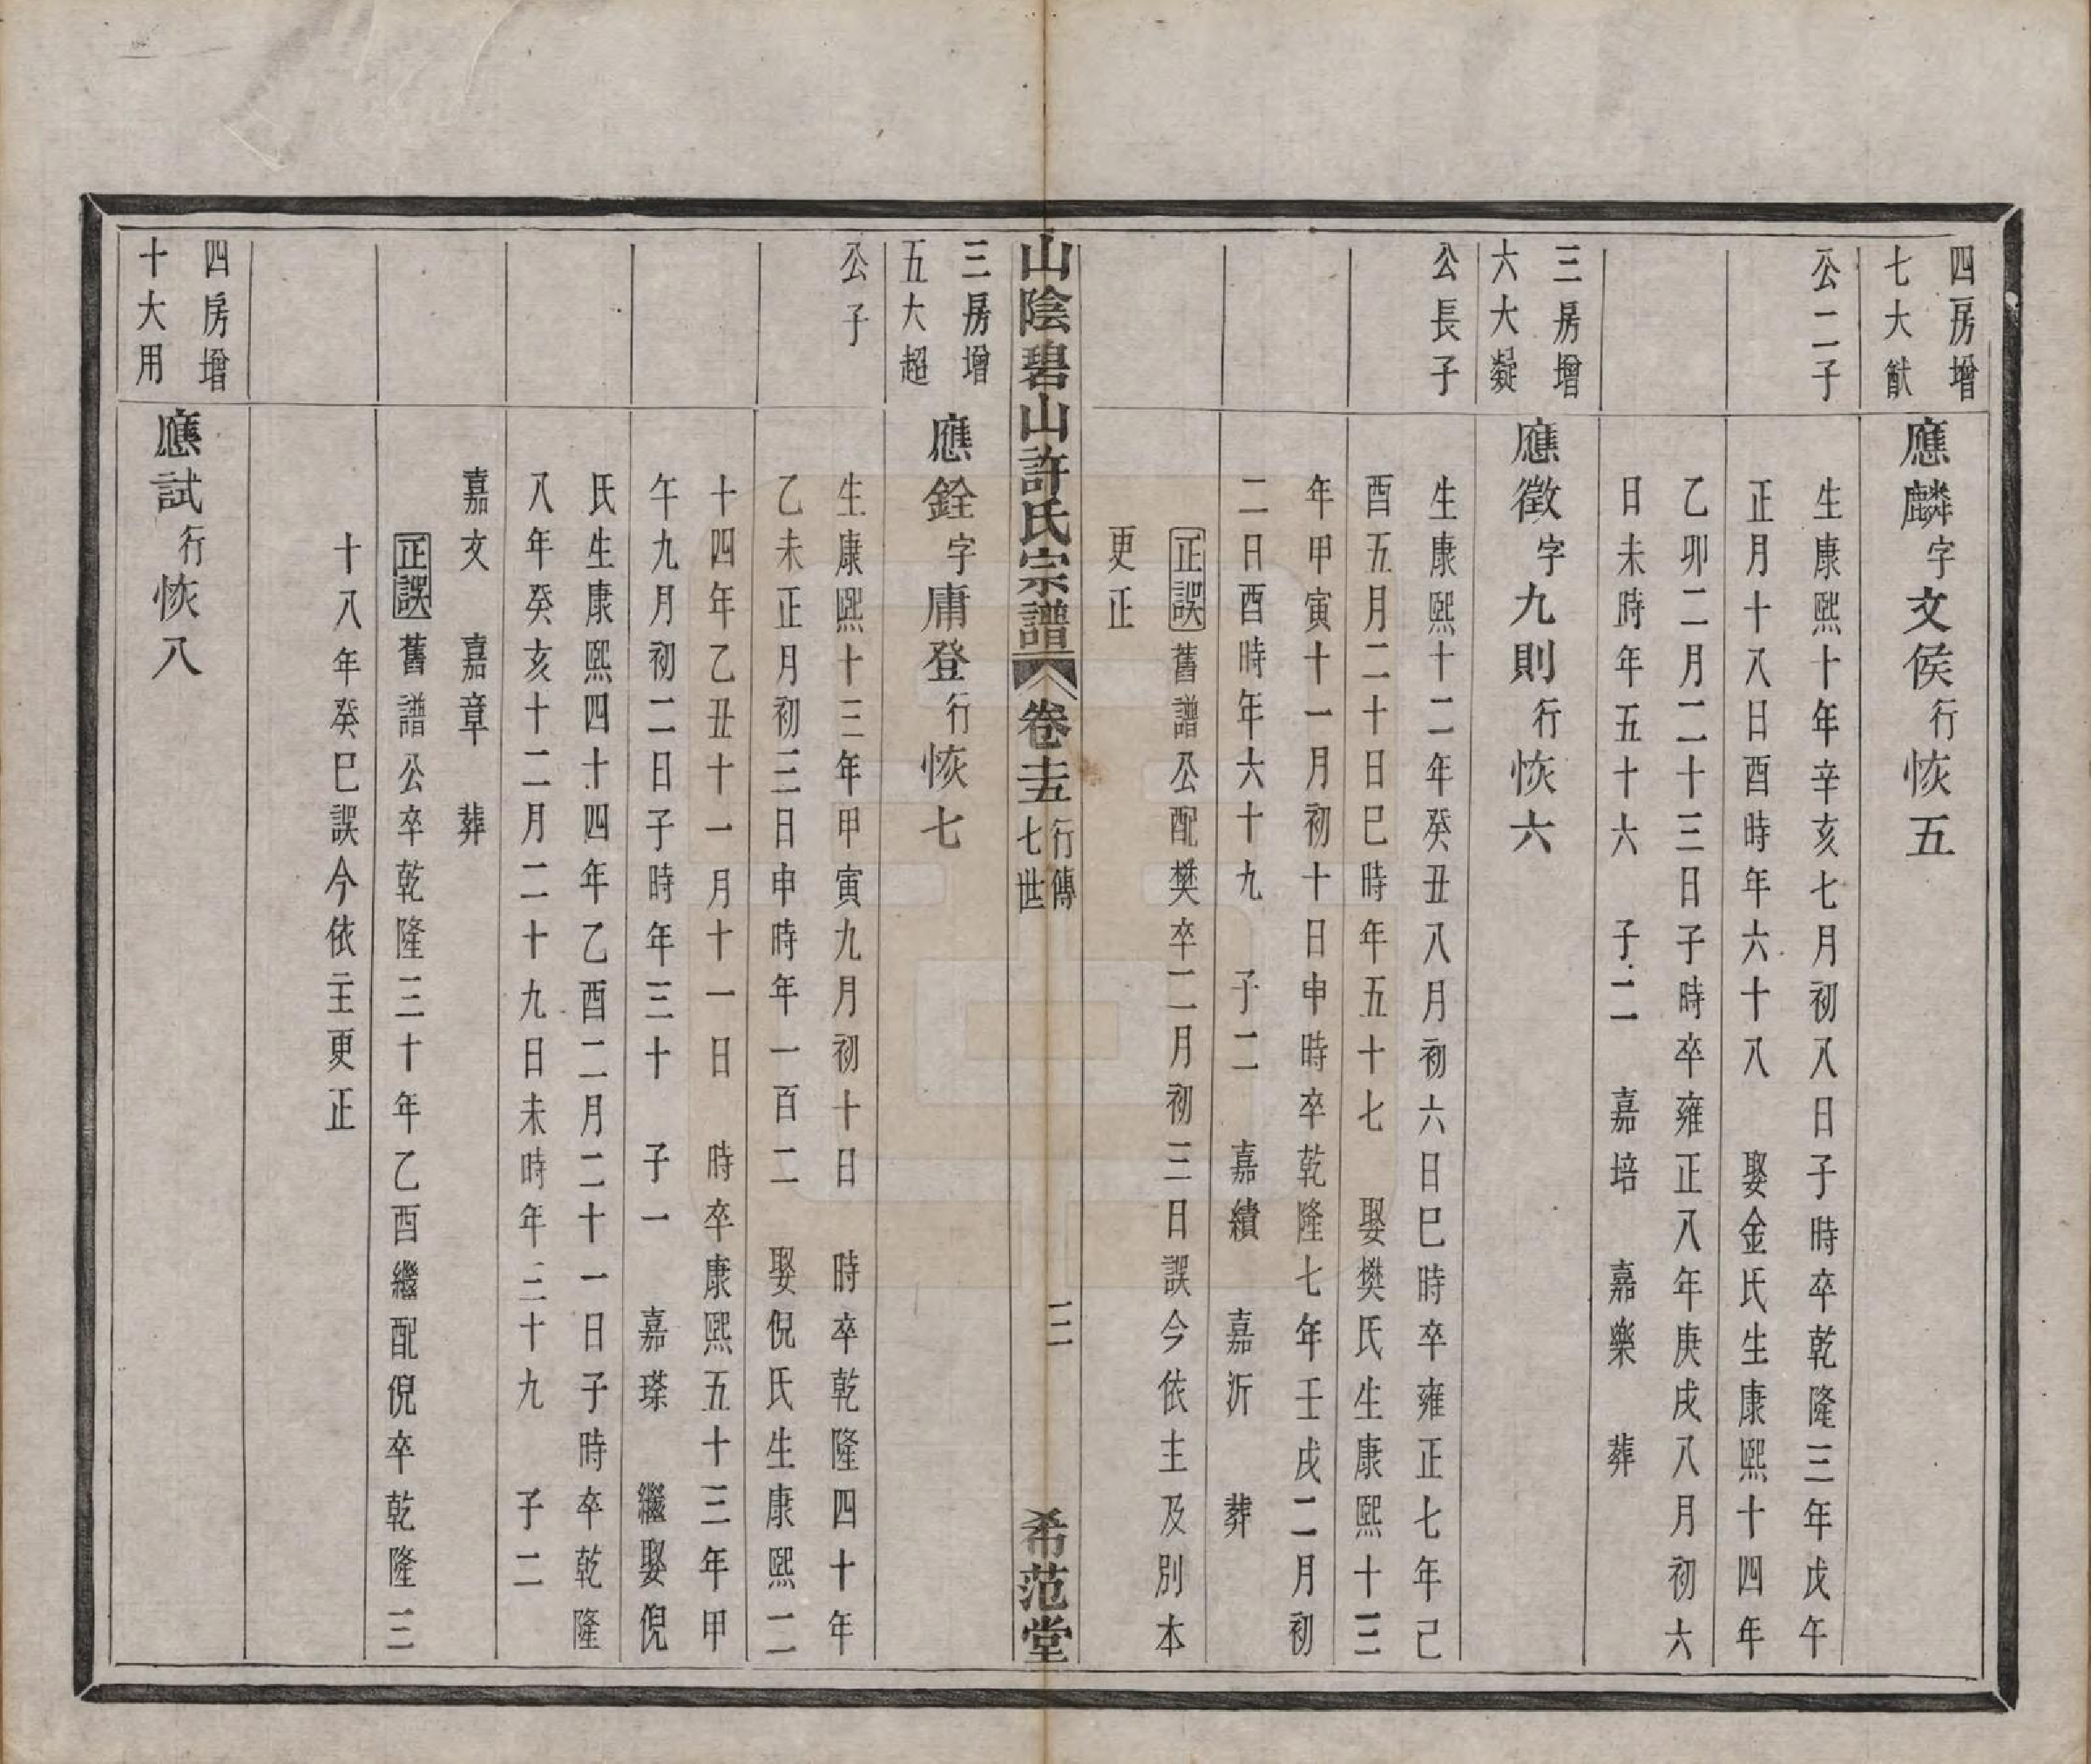 四房增
七大猷
應麟字文侯行恢五
公二子
生康熙十年辛亥七月初八日子時卒乾隆三年戊午
正月十八日酉時年六十八　娶金氏生康熙十四年
乙卯二月二十三日子時卒雍正八年庚戌八月初六
日未時年五十六　子二　嘉培　嘉樂　葬
三房增
六大凝
應徵字九則行恢六
公長子
生康熙十二年癸丑八月初六日巳時卒雍正七年己
酉五月二十日巳時年五十七　娶樊氏生康熙十三
年甲寅十一月初十日申時卒乾隆七年壬戌二月初
二日酉時年六十九　子二　嘉績　嘉沂　葬
正誤舊譜公配樊卒二月初三日誤今依主及別本
更正
山陰碧山許氏宗譜　卷十五　行傳　七世　三　希范堂
三房增
五大超
應銓字庸登行恢七
公子
生康熙十三年甲寅九月初十日　時卒乾隆四十年
乙未正月初三日申時年一百二　娶倪氏生康熙二
十四年乙丑十一月十一日　時卒康熙五十三年甲
午九月初二日子時年三十　子一　嘉瑹　繼娶倪
氏生康熙四十四年乙酉二月二十一日子時卒乾隆
八年癸亥十二月二十九日未時年三十九　子二
嘉文　嘉章　葬
正誤舊譜公卒乾隆三十年乙酉繼配倪卒乾隆三
十八年癸巳誤今依主更正
四房增
十大用
應試行恢八